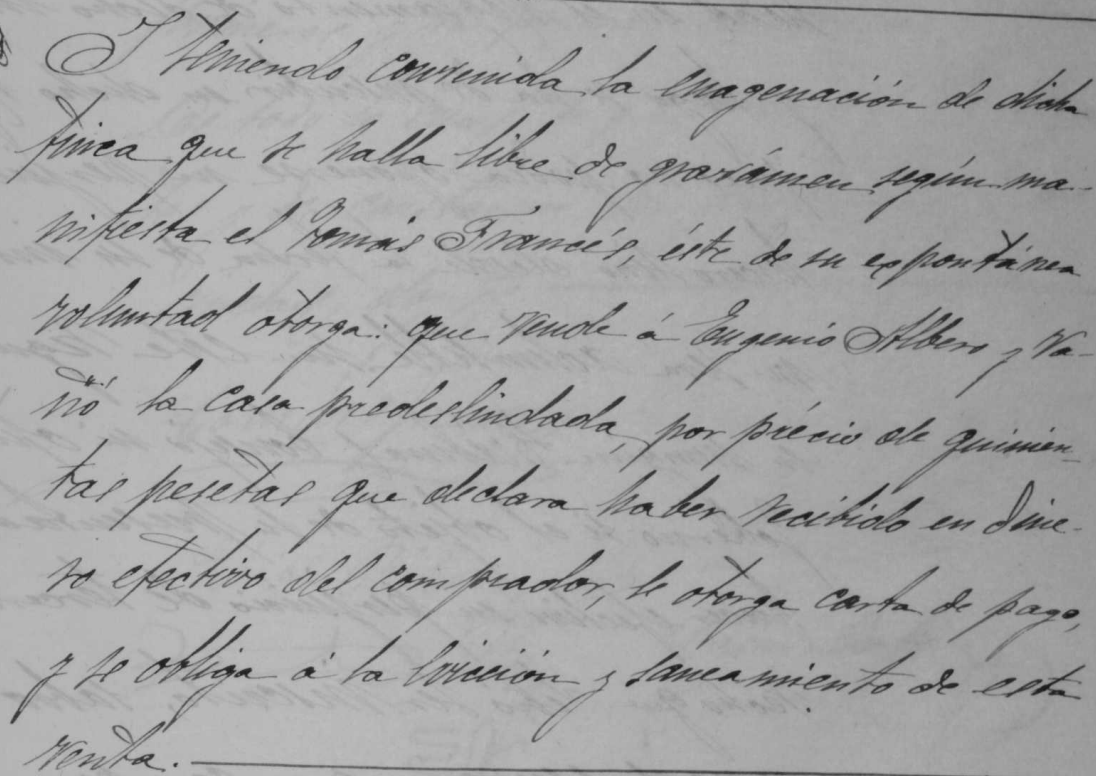 Y teniendo convenida la enagenación de dicha
finca que se halla libre de gravámen según ma-
nifiesta el Tomás Francés, éste de su expontánea
voluntad otorga: que vende á Eugenio Albero y Va-
ñó la casa predeslindada, por précio de quinien-
tas pesetas que declara haber recibido en dine-
ro efectivo del comprador, le otorga carta de pago,
y se obliga á la evicción y saneamiento de esta
venta.